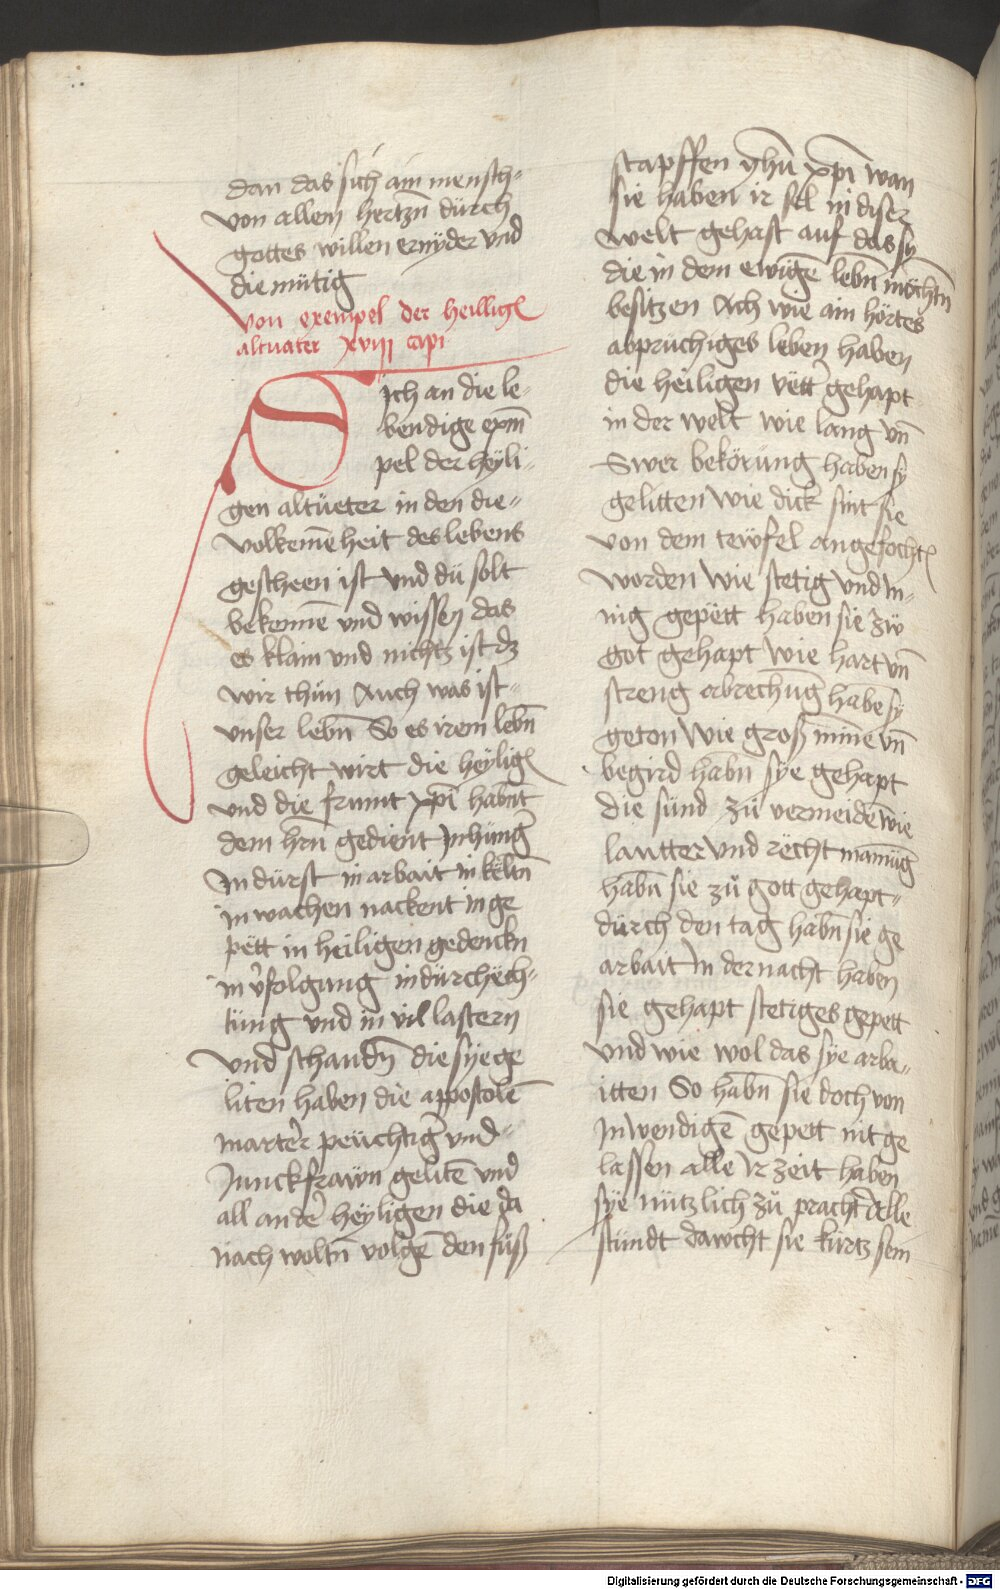 dan das sich ain mensch-
von allem hertzn̄ dürch
gottes willen ernyder vnd
diemütig
von exempel der heilliḡ
altuater xviij capi
Sich an die le-
bendige exm̄
pel der heyli-
gen altüeter in den die-
volkem̄eheit des lebens
gescheen ist vnd dü solt
bekennē vnd wissen das
es klain vnd nichtz ist dz
wir thün Auch was ist-
vnser lebn̄ So es irem lebn̄
geleicht wirt die heyliḡ
vnd die frunt xp̄i habn̄t
dem hrn̄ gedient Jn hüng̉
Jn dürst in arbait in keltn̄
in wachen nackent in ge
pëtt in heiligen gedenckn
in v̉folgung in dürchëch-
tüng vnd in vil lastern
vnd schandn̄ die sye ge
liten haben die appostolē
marter̉ peüchtig̉ vnd-
Junckfrawn gelitē vnd
all ander̉ heyligen die da
nach woltn̄ volgē den füß
stapffen yhū xp̄i wan
sie haben ir sel in diser
welt gehast auf das sy
die in dem ewigē lebn̄ möchtn̄
besitzen Ach wie ain hörtes
abprüchiges leben haben
die heiligen vëtt̉ gehapt
in der welt wie lang vn̄
Swer bekörüng haben sy
gelitten wie dick sint sie
von dem tewfel angefocht̄
worden wie stetig vnd in-
nig gepëtt haben sie zw
got gehapt wie hart vn̄
streng abrechūg habē sy
geton wie groß min̄e vn̄
begird habn̄ sye gehapt
die sünd zü vermeidē wie
lautter vnd rëcht mainūg
habn̄ sie zü gott gehapt-
dürch den tag habn̄ sie ge
arbait Jn der nacht haben
sie gehapt stetiges gepett
vnd wie wol das sye arba-
itten So habn̄ sie doch von
Jnwendigē gepett nit ge
lassen alle Jr zeit haben
sye nützlich zü pracht Alle
stündt dawcht sie kürtz sein
Digitalisierung gefördert durch die Deutsche Forschungsgemeinschaft - DFG